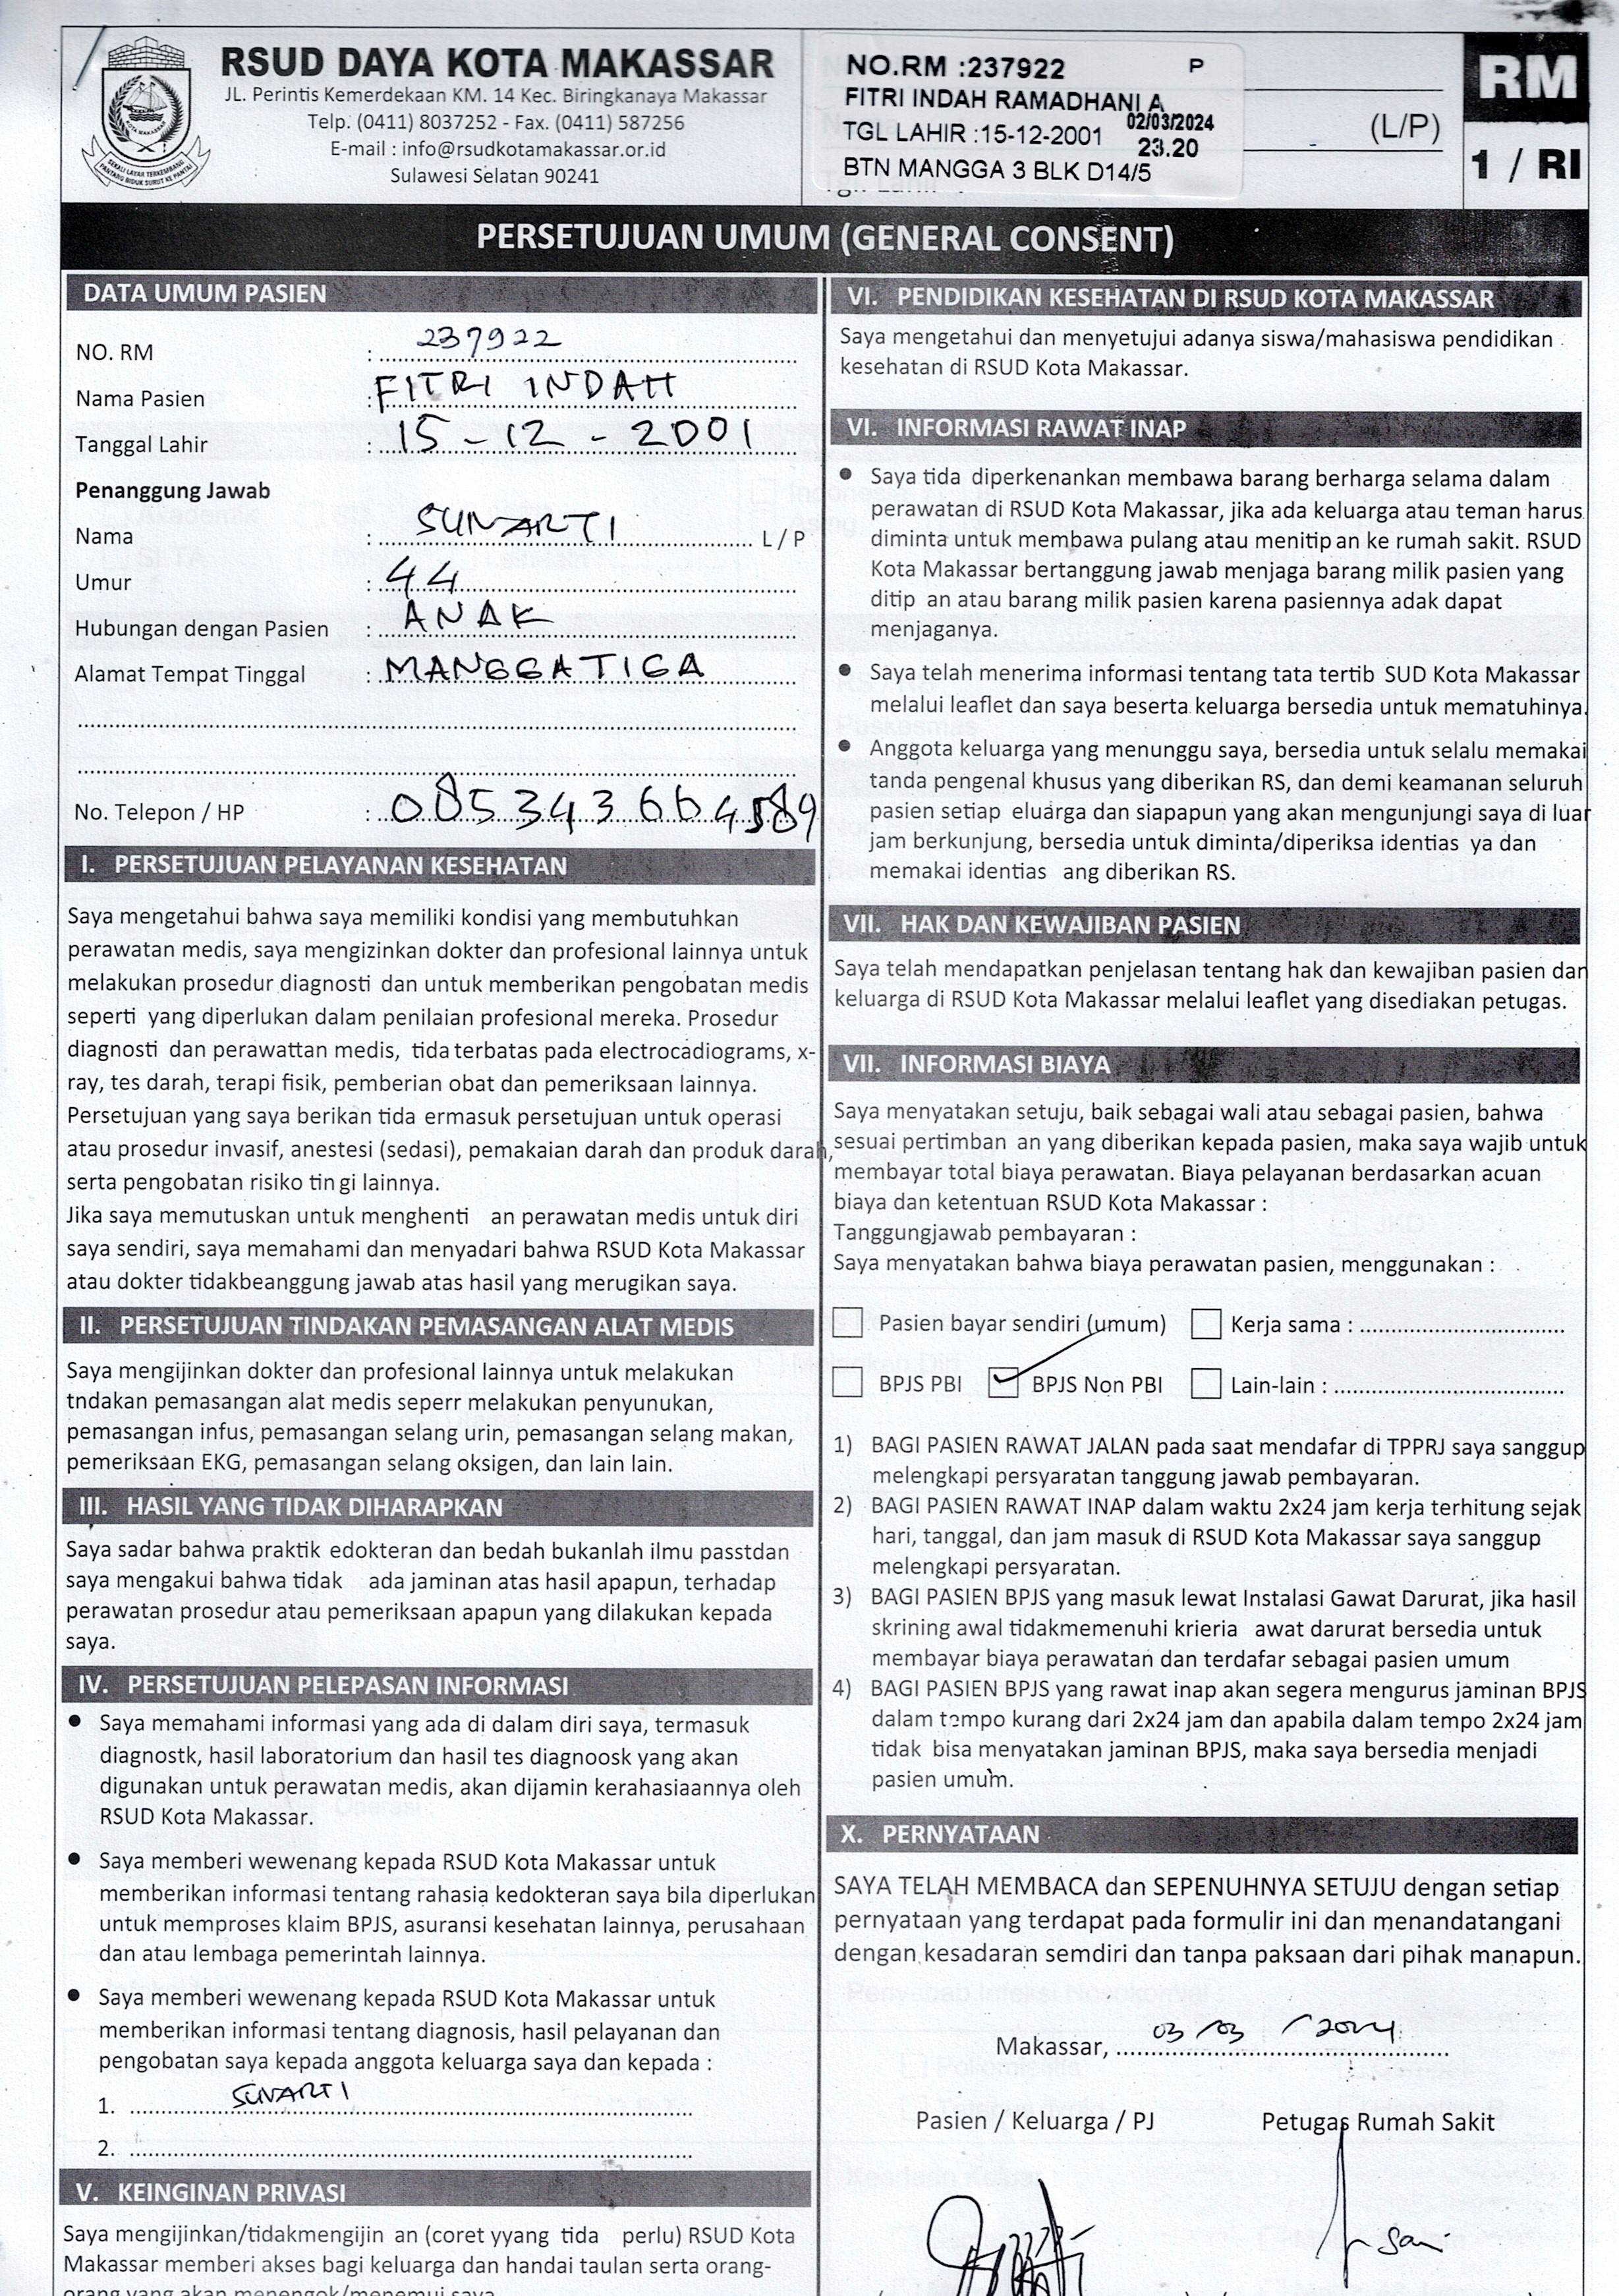 RSUD DAYA KOTA MAKASSAR
JL. Perintis Kemerdekaan KM. 14 Kec. Biringkanaya Makassar
Telp. (0411) 8037252 - Fax. (0411) 587256
E-mail : info@rsudkotamakassar.or.id
Sulawesi Selatan 90241
NO.RM :237922 P
FITRI INDAH RAMADHANI A
02/03/2024
TGL LAHIR :15-12-2001
23.20
BTN MANGGA 3 BLK D14/5
(L/P)
RM
1 / RI
PERSETUJUAN UMUM (GENERAL CONSENT)
DATA UMUM PASIEN
NO. RM : 237922
Nama Pasien : FITRI INDAH
Tanggal Lahir : 15 - 12 - 2001
Penanggung Jawab
Nama : SUNARTI L / P
Umur : 44
Hubungan dengan Pasien : ANAK
Alamat Tempat Tinggal : MANGGA TIGA
No. Telepon / HP :
I. PERSETUJUAN PELAYANAN KESEHATAN
Saya mengetahui bahwa saya memiliki kondisi yang membutuhkan
perawatan medis, saya mengizinkan dokter dan profesional lainnya untuk
melakukan prosedur diagnosti dan untuk memberikan pengobatan medis
seperti yang diperlukan dalam penilaian profesional mereka. Prosedur
diagnosti dan perawattan medis, tida terbatas pada electrocadiograms, x-
ray, tes darah, terapi fisik, pemberian obat dan pemeriksaan lainnya.
Persetujuan yang saya berikan tida ermasuk persetujuan untuk operasi
atau prosedur invasif, anestesi (sedasi), pemakaian darah dan produk darah,
serta pengobatan risiko tin gi lainnya.
Jika saya memutuskan untuk menghenti an perawatan medis untuk diri
saya sendiri, saya memahami dan menyadari bahwa RSUD Kota Makassar
atau dokter tidakbeanggung jawab atas hasil yang merugikan saya.
II. PERSETUJUAN TINDAKAN PEMASANGAN ALAT MEDIS
Saya mengijinkan dokter dan profesional lainnya untuk melakukan
tndakan pemasangan alat medis seperr melakukan penyunukan,
pemasangan infus, pemasangan selang urin, pemasangan selang makan,
pemeriksaan EKG, pemasangan selang oksigen, dan lain lain.
III. HASIL YANG TIDAK DIHARAPKAN
Saya sadar bahwa praktik edokteran dan bedah bukanlah ilmu passtdan
saya mengakui bahwa tidak ada jaminan atas hasil apapun, terhadap
perawatan prosedur atau pemeriksaan apapun yang dilakukan kepada
saya.
IV. PERSETUJUAN PELEPASAN INFORMASI
• Saya memahami informasi yang ada di dalam diri saya, termasuk
diagnostk, hasil laboratorium dan hasil tes diagnoosk yang akan
digunakan untuk perawatan medis, akan dijamin kerahasiaannya oleh
RSUD Kota Makassar.
• Saya memberi wewenang kepada RSUD Kota Makassar untuk
memberikan informasi tentang rahasia kedokteran saya bila diperlukan
untuk memproses klaim BPJS, asuransi kesehatan lainnya, perusahaan
dan atau lembaga pemerintah lainnya.
• Saya memberi wewenang kepada RSUD Kota Makassar untuk
memberikan informasi tentang diagnosis, hasil pelayanan dan
pengobatan saya kepada anggota keluarga saya dan kepada :
1. SUNARTI
2.
V. KEINGINAN PRIVASI
Saya mengijinkan/tidakmengijin an (coret yyang tida perlu) RSUD Kota
Makassar memberi akses bagi keluarga dan handai taulan serta orang-
orang yang akan menengok/menemui saya
VI. PENDIDIKAN KESEHATAN DI RSUD KOTA MAKASSAR
Saya mengetahui dan menyetujui adanya siswa/mahasiswa pendidikan
kesehatan di RSUD Kota Makassar.
VI. INFORMASI RAWAT INAP
• Saya tida diperkenankan membawa barang berharga selama dalam
perawatan di RSUD Kota Makassar, jika ada keluarga atau teman harus
diminta untuk membawa pulang atau menitip an ke rumah sakit. RSUD
Kota Makassar bertanggung jawab menjaga barang milik pasien yang
ditip an atau barang milik pasien karena pasiennya adak dapat
menjaganya.
• Saya telah menerima informasi tentang tata tertib SUD Kota Makassar
melalui leaflet dan saya beserta keluarga bersedia untuk mematuhinya.
• Anggota keluarga yang menunggu saya, bersedia untuk selalu memakai
tanda pengenal khusus yang diberikan RS, dan demi keamanan seluruh
pasien setiap eluarga dan siapapun yang akan mengunjungi saya di luar
jam berkunjung, bersedia untuk diminta/diperiksa identias ya dan
memakai identias ang diberikan RS.
VII. HAK DAN KEWAJIBAN PASIEN
Saya telah mendapatkan penjelasan tentang hak dan kewajiban pasien dan
keluarga di RSUD Kota Makassar melalui leaflet yang disediakan petugas.
VII. INFORMASI BIAYA
Saya menyatakan setuju, baik sebagai wali atau sebagai pasien, bahwa
sesuai pertimban an yang diberikan kepada pasien, maka saya wajib untuk
membayar total biaya perawatan. Biaya pelayanan berdasarkan acuan
biaya dan ketentuan RSUD Kota Makassar :
Tanggungjawab pembayaran :
Saya menyatakan bahwa biaya perawatan pasien, menggunakan :
Pasien bayar sendiri (umum) Kerja sama :
BPJS PBI BPJS Non PBI Lain-lain :
1) BAGI PASIEN RAWAT JALAN pada saat mendafar di TPPRJ saya sanggup
melengkapi persyaratan tanggung jawab pembayaran.
2) BAGI PASIEN RAWAT INAP dalam waktu 2x24 jam kerja terhitung sejak
hari, tanggal, dan jam masuk di RSUD Kota Makassar saya sanggup
melengkapi persyaratan.
3) BAGI PASIEN BPJS yang masuk lewat Instalasi Gawat Darurat, jika hasil
skrining awal tidakmemenuhi krieria awat darurat bersedia untuk
membayar biaya perawatan dan terdafar sebagai pasien umum
4) BAGI PASIEN BPJS yang rawat inap akan segera mengurus jaminan BPJS
dalam tempo kurang dari 2x24 jam dan apabila dalam tempo 2x24 jam
tidak bisa menyatakan jaminan BPJS, maka saya bersedia menjadi
pasien umum.
X. PERNYATAAN
SAYA TELAH MEMBACA dan SEPENUHNYA SETUJU dengan setiap
pernyataan yang terdapat pada formulir ini dan menandatangani
dengan kesadaran semdiri dan tanpa paksaan dari pihak manapun.
Makassar, 03/03/2024
Pasien / Keluarga / PJ Petugas Rumah Sakit